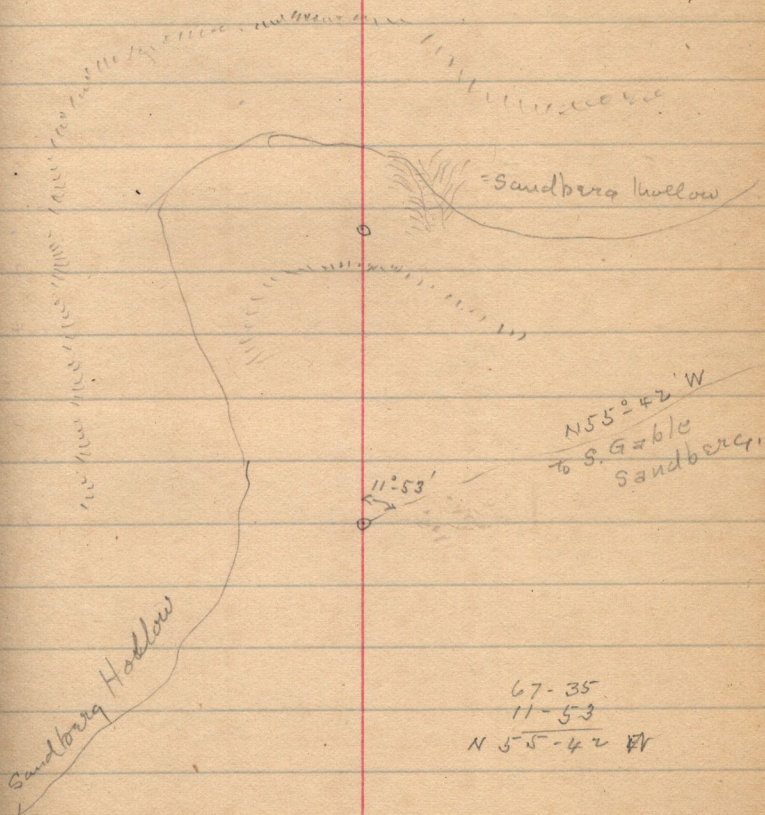 =Sandberg Hollow
N55°-42' W
to S. Gable
Sandberg.
11°-53'
Sandberg Hollow
67-35
11-53
N 55-42 W